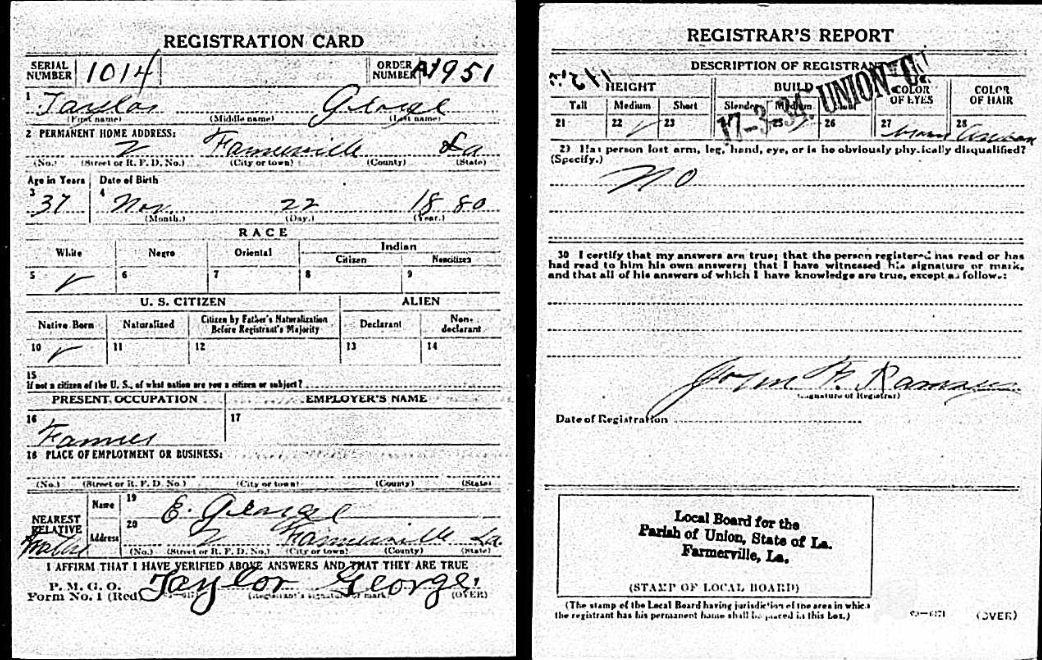 REGISTRATION CARD
SERIAL NUMBER 1014 ORDER NUMBER A1951
1 Taylor George
(First name) (Middle name) (Last name)
2 PERMANENT HOME ADDRESS:
2 Farmerville La
(No.) (Street or R. F. D. No.) (City or town) (County) (State)
Age in Years Date of Birth
3 37 4 Nov. 22 1880
(Month.) (Day.) (Year.)
RACE
White Negro Oriental Indian
Citizen Noncitizen
5 6 7 8 9
U. S. CITIZEN ALIEN
Native Born Naturalized Citizen by Father's Naturalization Before Registrant's Majority Declarant Non-declarant
10 11 12 13 14
15
If not a citizen of the U. S., of what nation are you a citizen or subject?
PRESENT OCCUPATION EMPLOYER'S NAME
16 Farmer 17
18 PLACE OF EMPLOYMENT OR BUSINESS:
(No.) (Street or R. F. D. No.) (City or town) (County) (State)
NEAREST RELATIVE Name 19 E. George
Address 20 2 Farmerville La
(No.) (Street or R. F. D. No.) (City or town) (County) (State)
I AFFIRM THAT I HAVE VERIFIED ABOVE ANSWERS AND THAT THEY ARE TRUE
P. M. G. O.
Form No. 1 (Red) Taylor George
(Registrant's signature or mark) (OVER)
REGISTRAR'S REPORT
17-3-34 UNION C.
DESCRIPTION OF REGISTRANT
HEIGHT BUILD COLOR OF EYES COLOR OF HAIR
Tall Medium Short Slender Medium
21 22 23 25 26 27 28
29 Has person lost arm, leg, hand, eye, or is he obviously physically disqualified?
(Specify.)
NO
30 I certify that my answers are true; that the person registered has read or has
had read to him his own answers; that I have witnessed his signature or mark,
and that all of his answers of which I have knowledge are true, except as follows:
John
(Signature of Registrar)
Date of Registration
Local Board for the
Parish of Union, State of La.
Farmerville, La.
(STAMP OF LOCAL BOARD)
(The stamp of the Local Board having jurisdiction of the area in which
the registrant has his permanent home shall be placed in this box.)
(OVER)